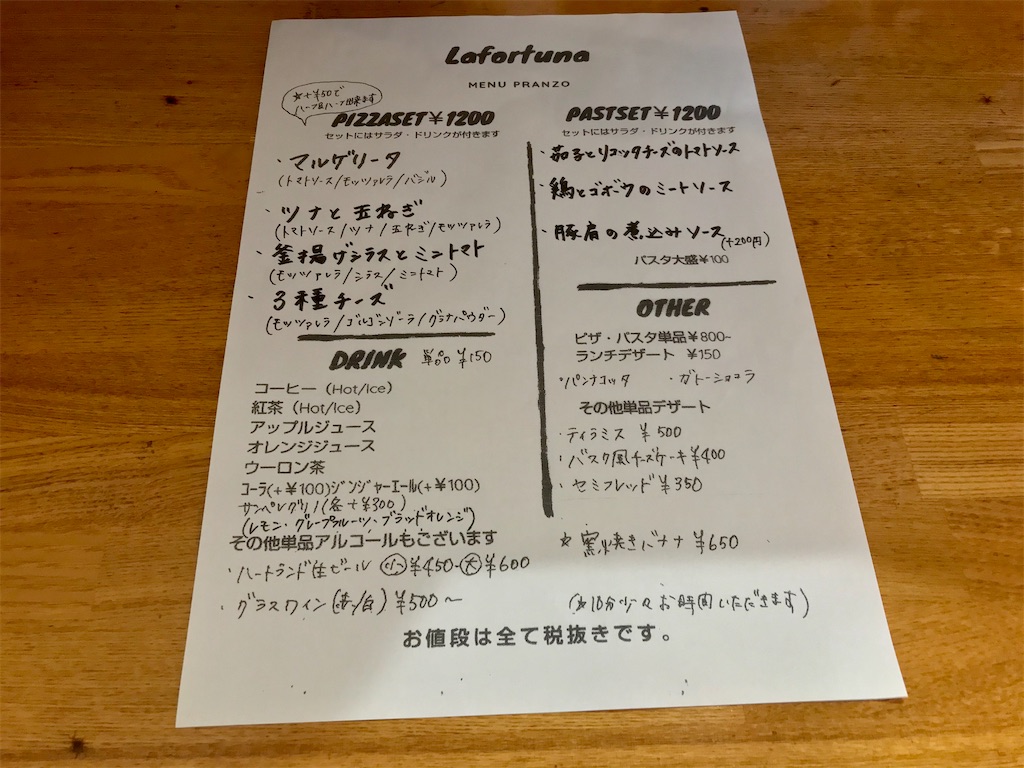 Lafortuna
MENU PRANZO
☆+¥50で
ハーフ&ハーフ出来ます
PIZZASET¥1200
セットにはサラダ・ドリンクが付きます
・マルゲリータ
(トマトソース/モッツァレラ/バジル)
・ツナと玉ねぎ
(トマトソース/ツナ/玉ねぎ/モッツァレラ)
・釜揚げシラスとミニトマト
(モッツァレラ/シラス/ミニトマト)
・3種チーズ
(モッツァレラ/ゴルゴンゾーラ/グラナパウダー)
DRINK 単品¥150
コーヒー(Hot/Ice)
紅茶(Hot/Ice)
アップルジュース
オレンジジュース
ウーロン茶
コーラ(+¥100)ジンジャーエール(+¥100)
サンペレグリノ(各+¥300)
(レモン・グレープフルーツ・ブラッドオレンジ)
その他単品アルコールもございます
・ハートランド生ビール 小¥450-大¥600
・グラスワイン(赤/白)¥500〜
PASTSET¥1200
セットにはサラダ・ドリンクが付きます
・茄子とリコッタチーズのトマトソース
・鶏とゴボウのミートソース
・豚肩の煮込みソース(+200円)
パスタ大盛¥100
OTHER
ピザ・パスタ単品¥800~
ランチデザート ¥150
・パンナコッタ ・ガトーショコラ
その他単品デザート
・ティラミス ¥500
・バスク風チーズケーキ¥400
・セミフレッド¥350
☆窯焼きバナナ¥650
(☆10分少々お時間いただきます)
お値段は全て税抜きです。